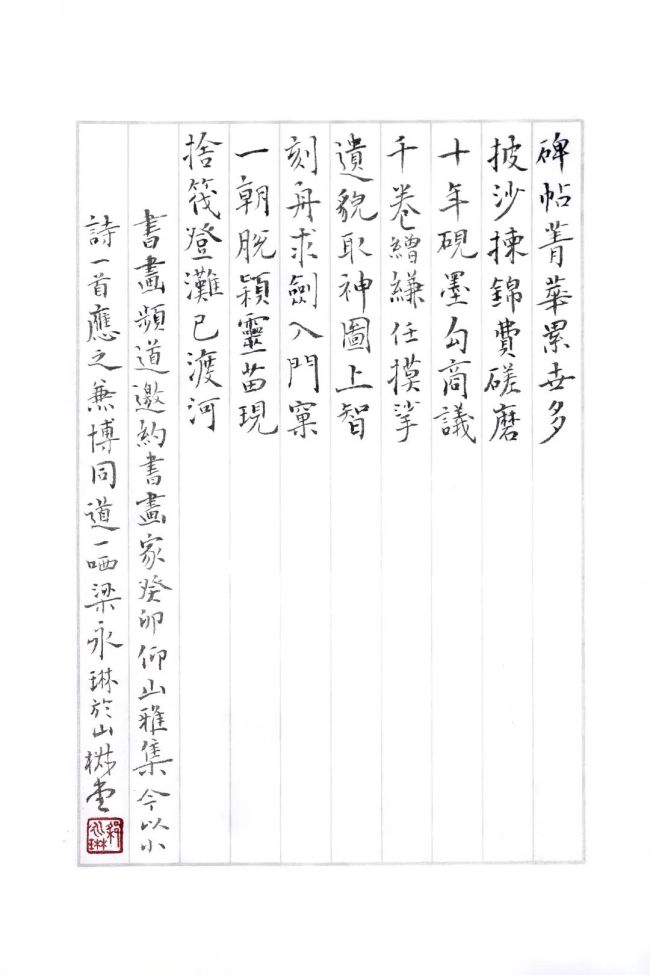 碑帖菁華累世多
披沙揀錦費磋磨
十年硯墨勾商議
千卷繒縑任摸挲
遺貌取神圖上智
刻舟求劍入門窠
一朝脫穎靈苗現
捨筏登灘已渡河
書畫頻道邀約書畫家癸卯仰山雅集今以小
詩一首應之兼博同道一哂梁永琳於山堂